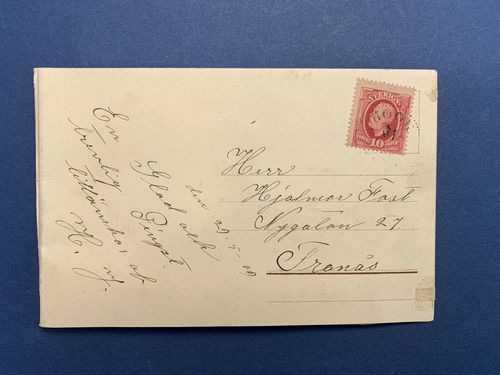 En
Glad och
trevlig
Pingst.
tillönskas af
H. J.
den 29/5 09
SVERIGE
10
ÖRE
Herr
Hjalmar Fast
Nygatan 27
Tranås